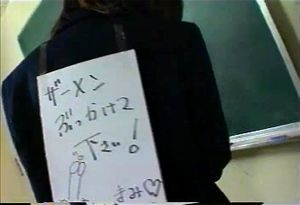 ザーメン
ぶっかけて
下さい!
まみ♡